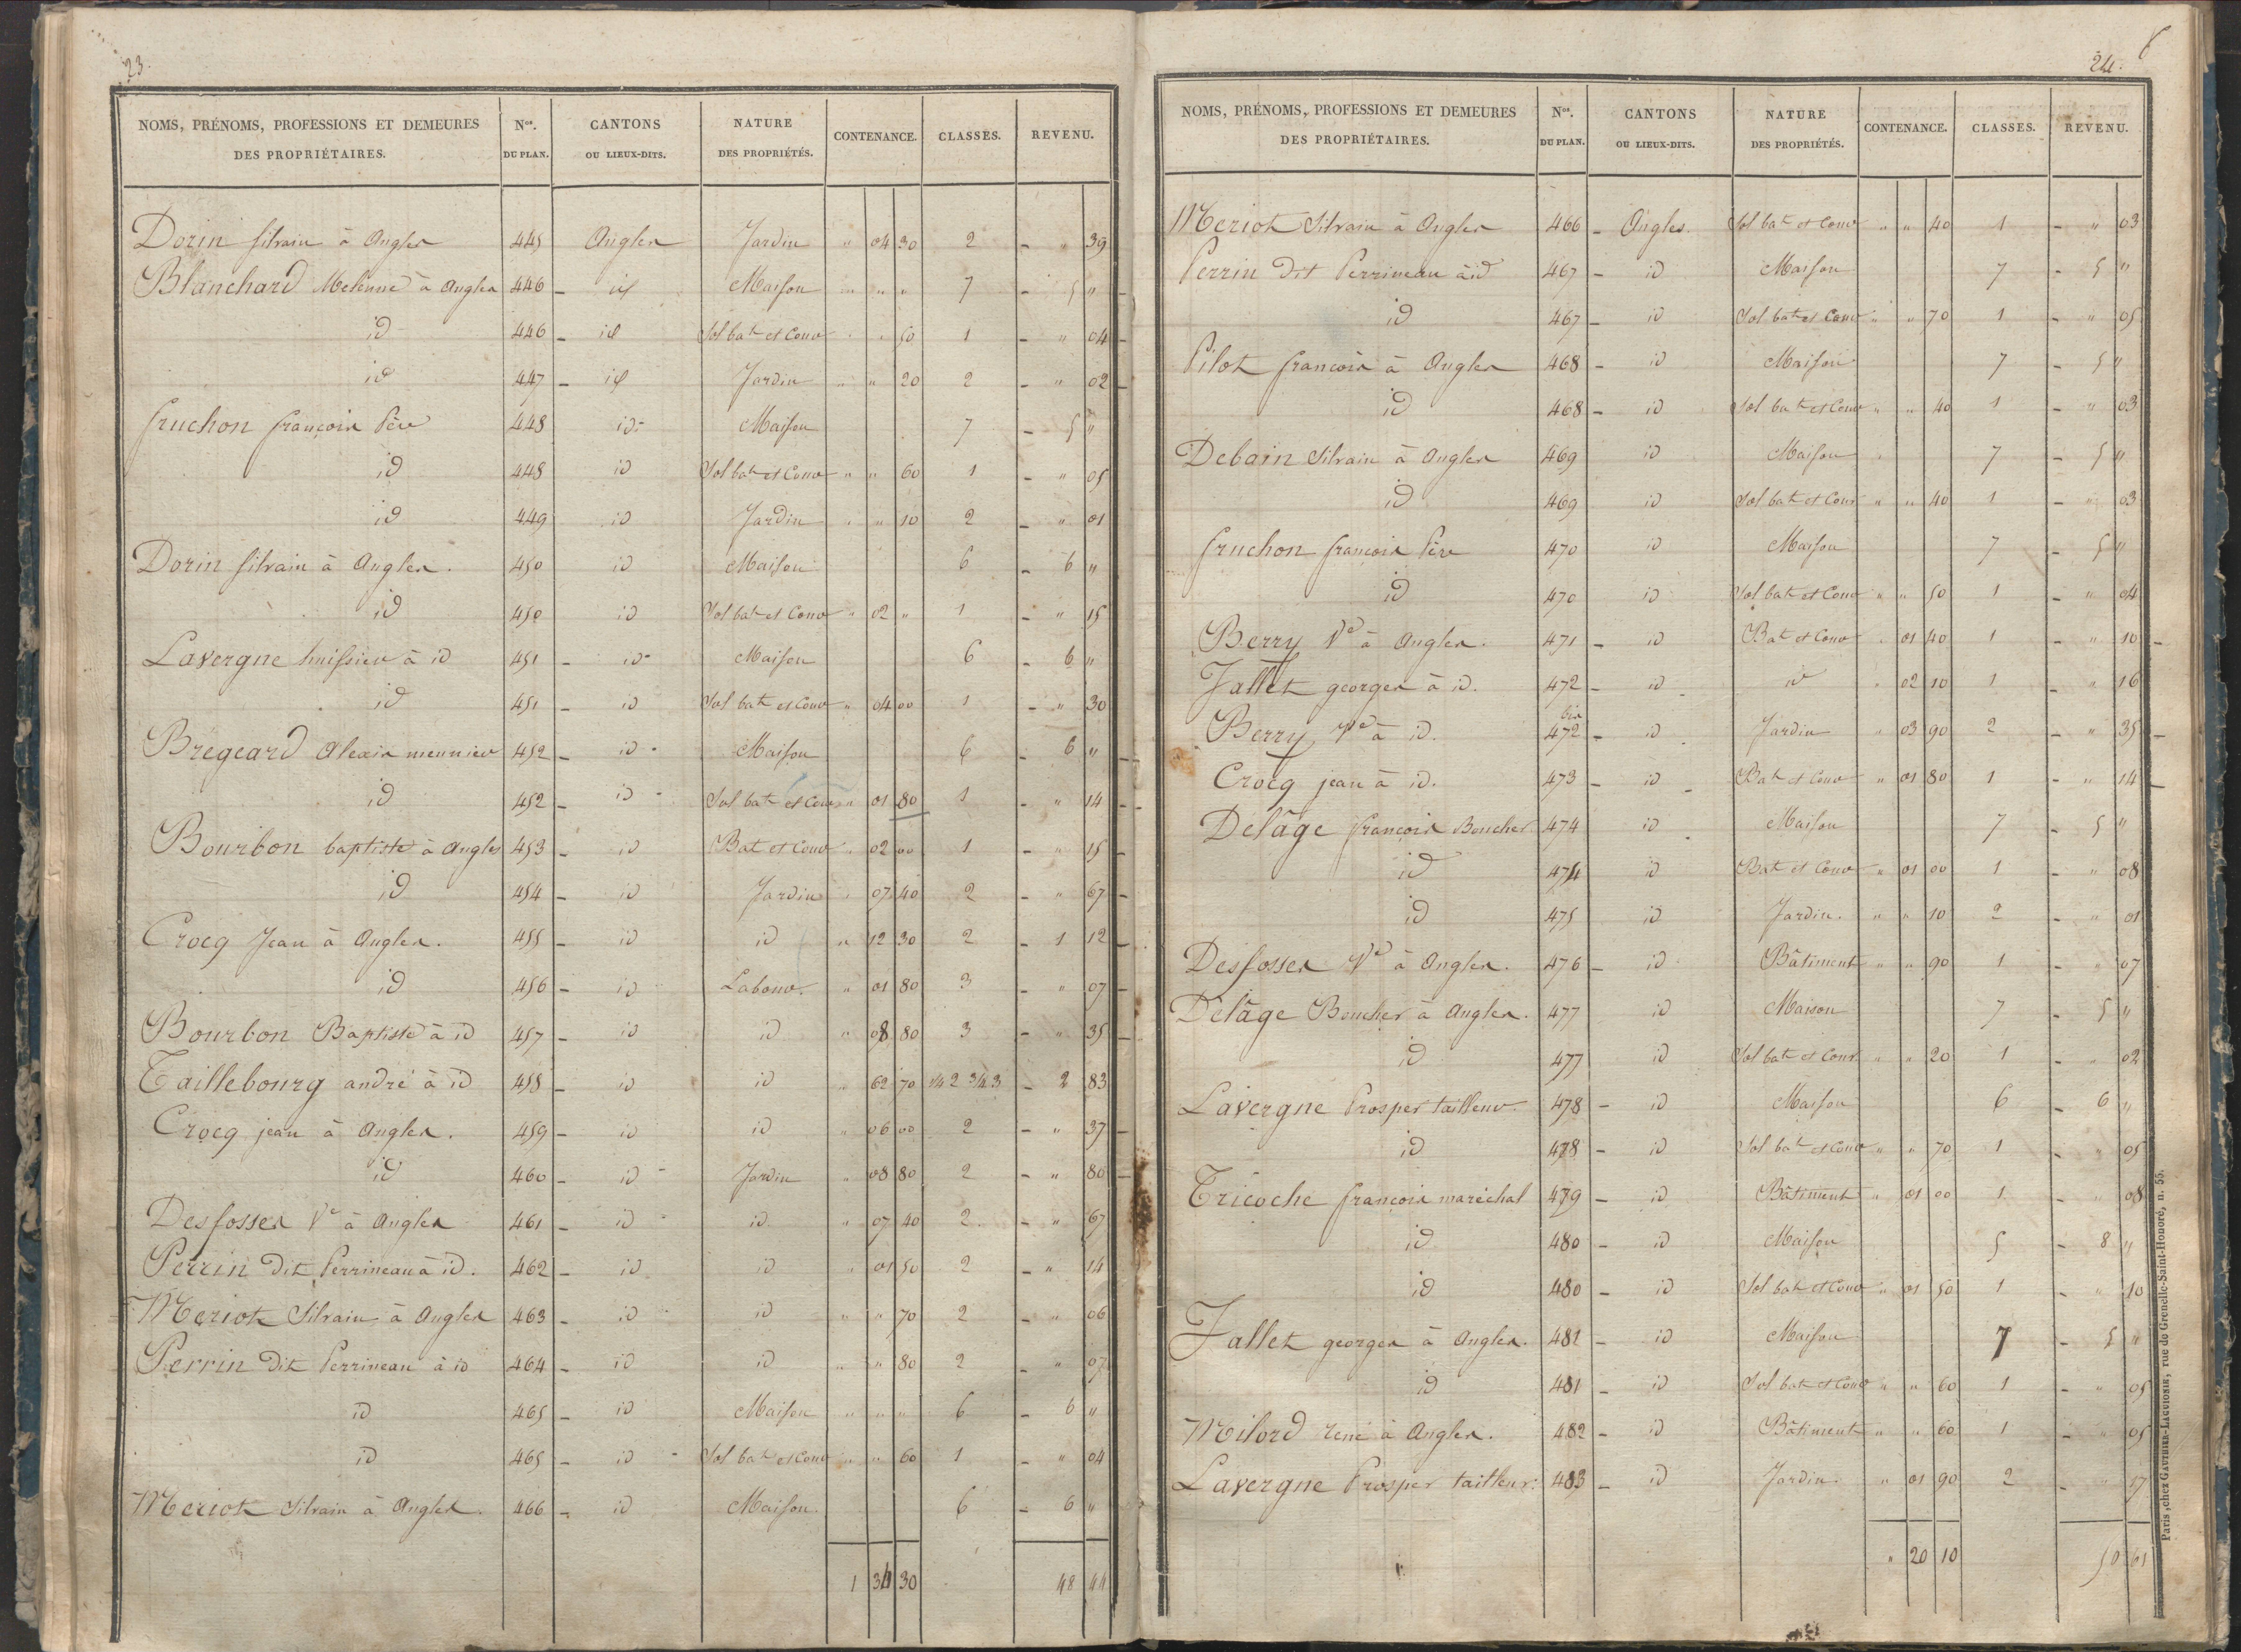 23.
NOMS, PRÉNOMS, PROFESSIONS ET DEMEURES DES PROPRIÉTAIRES. Nos. DU PLAN. CANTONS OU LIEUX-DITS. NATURE DES PROPRIÉTÉS. CONTENANCE. CLASSES. REVENU.
Dorin Silvain à Angles 445 Angles Jardin " 04 30 2 - " 39
Blanchard à Angles 446 - id Maison " " " 7 - 5 "
id 446 - id Sol bat et Cour " " 50 1 - " 04
id 447 - id Jardin " " 20 2 - " 02
fruchon françois Père 448 id Maison 7 - 5 "
id 448 id Sol bat et Cour " " 60 1 - " 05
id 449 id Jardin " " 10 2 - " 01
Dorin Silvain à Angles. 450 id Maison 6 - 6 "
id 450 id Sol bat et Cour " 02 " 1 - " 15
Lavergne huissier à id 451 - id Maison 6 - 6 "
id 451 - id Sol bat et Cour " 04 00 1 - " 30
Bregeard Alexis meunier 452 - id Maison 6 - 6 "
id 452 - id Sol bat et Cour " 01 80 1 - " 14
Bourbon baptiste à Angles 453 - id Bat et Cour " 02 00 1 - " 15
id 454 - id Jardin " 07 40 2 - " 67
Crocq Jean à Angles. 455 - id id " 12 30 2 - 1 12
id 456 - id Labour. " 01 80 3 - " 07
Bourbon Baptiste à id 457 - id id " 08 80 3 - " 35
Taillebourg andré à id 458 - id id " 62 70 1/4 2 3/4 3 - 2 83
Crocq jean à Angles. 459 - id id " 06 00 2 - " 37
id 460 - id Jardin " 08 80 2 - " 80
Desfosses Ve à Angles 461 - id id " 07 40 2 - " 67
Perrin dit Perrineau à id. 462 - id id " 01 50 2 - " 14
Meriot Silvain à Angles 463 - id id " " 70 2 - " 06
Perrin dit Perrineau à id 464 - id id " " 80 2 - " 07
id 465 - id Maison " " " 6 - 6 "
id 465 - id Sol bat et Cour " " 60 1 - " 04
Meriot Silvain à Angles. 466 - id Maison 6 - 6 "
1 34 30 48 44
24.
6
NOMS, PRÉNOMS, PROFESSIONS ET DEMEURES DES PROPRIÉTAIRES. Nos. DU PLAN. CANTONS OU LIEUX-DITS. NATURE DES PROPRIÉTÉS. CONTENANCE. CLASSES. REVENU.
Meriot Silvain à Angles 466 - Angles. Sol bat et Cour " " 40 1 - " 03
Perrin dit Perrineau à id 467 - id Maison 7 - 5 "
id 467 - id Sol bat et Cour " " 70 1 - " 05
Pilot françois à Angles 468 - id Maison 7 - 5 "
id 468 - id Sol bat et Cour " " 40 1 - " 03
Debain Silvain à Angles 469 id Maison 7 - 5 "
id 469 id Sol bat et Cour " " 40 1 - " 03
fruchon françois Père 470 id Maison 7 - 5 "
id 470 id Sol bat et Cour " " 50 1 - " 04
Berry Ve à Angles. 471 - id Bat et Cour " 01 40 1 - " 10
Jallet georges à id. 472 - id id " 02 10 1 - " 16
Berry Ve à id. 472 bis - id Jardin " 03 90 2 - " 35
Crocq jean à id. 473 - id Bat et Cour " 01 80 1 - " 14
Delâge françois Boucher 474 id Maison 7 - 5 "
id 474 id Bat et Cour " 01 00 1 - " 08
id 475 id Jardin. " " 10 2 - " 01
Desfosses Ve à Angles. 476 - id Bâtiment " " 90 1 - " 07
Delâge Boucher à Angles. 477 id Maison 7 - 5 "
id 477 id Sol bat et Cour " " 20 1 - " 02
Lavergne Prosper tailleur. 478 - id Maison 6 - 6 "
id 478 - id Sol bat et Cour " " 70 1 - " 05
Tricoche françois maréchal 479 - id Bâtiment " 01 00 1 - " 08
id 480 - id Maison 5 - 8 "
id 480 - id Sol bat et Cour " 01 50 1 - " 10
Jallet georges à Angles. 481 - id Maison 7 - 5 "
id 481 - id Sol bat et Cour " " 60 1 - " 05
Milord René à Angles. 482 - id Bâtiment " " 60 1 - " 05
Lavergne Prosper tailleur: 483 - id Jardin. " 01 90 2 - " 17
" 20 10 50 61
Paris, chez GAUTHIER-LAGUIONIE, rue de Grenelle-Saint-Honoré, n. 55.